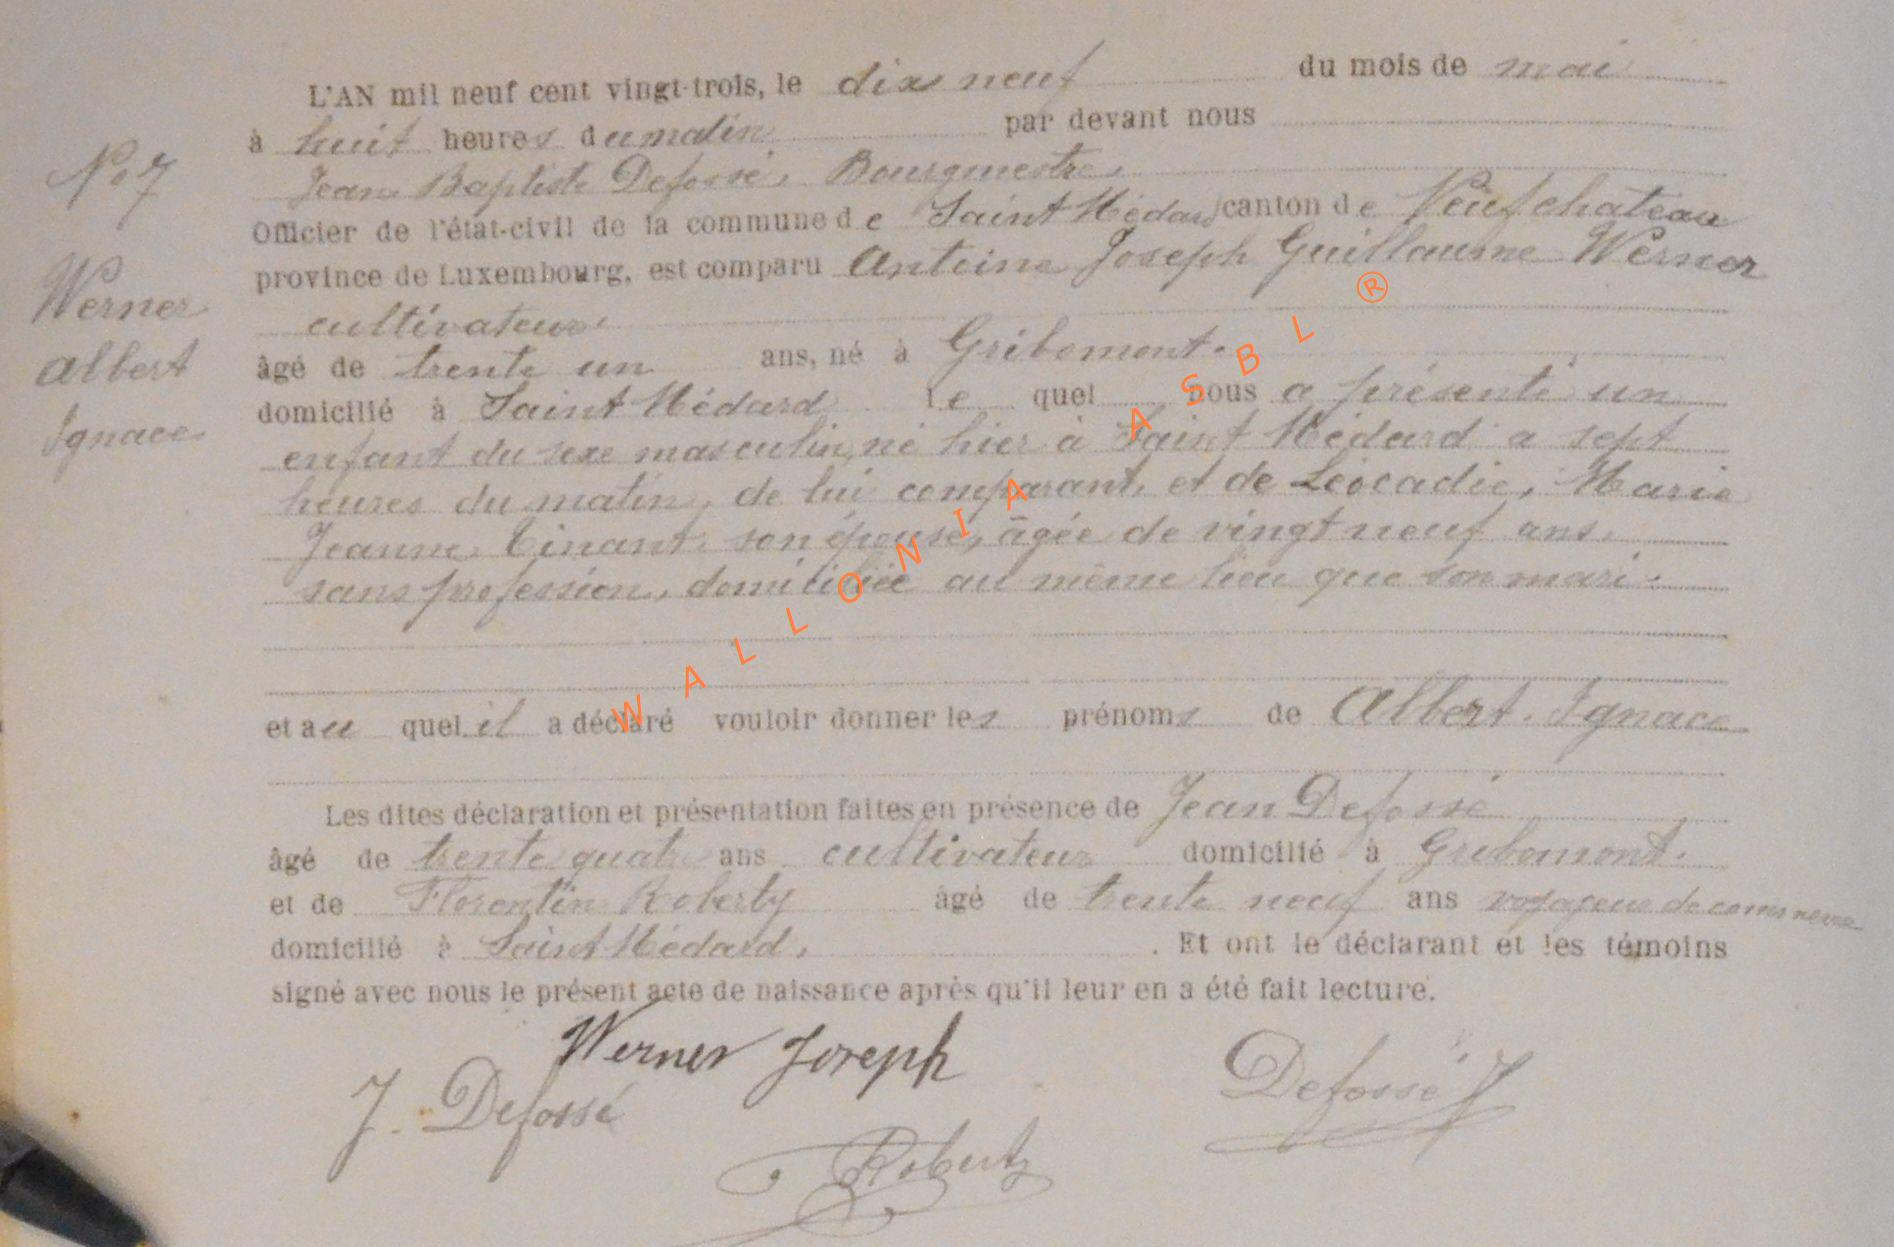 L'AN mil neuf cent vingt-trois, le dix neuf du mois de mai
à huit heures du matin par devant nous
Jean Baptiste Defossé, Bourgmestre,
Officier de l'état-civil de la commune de Saint Médard canton de Neufchateau
province de Luxembourg, est comparu Antoine Joseph Guillaume Werner
cultivateur
âgé de trente un ans, né à Gribomont.
domicilié à Saint Médard Le quel nous a présenté un
enfant du sexe masculin, né hier à Saint Médard a sept
heures du matin, de lui comparant, et de Léocadie, Marie
Jeanne Tinant, son épouse, âgée de vingt neuf ans,
sans profession, domiciliée au même lieu que son mari.
et au quel il a déclaré vouloir donner les prénoms de Albert. Ignace
Les dites déclaration et présentation faites en présence de Jean Defossé
âgé de trente quatre ans cultivateur domicilié à Gribomont.
et de Florentin Roberty âgé de trente neuf ans voyageur de commerce
domicilié à Saint Médard, . Et ont le déclarant et les témoins
signé avec nous le présent acte de naissance après qu'il leur en a été fait lecture.
Werner Joseph
J. Defossé
Defossé J
Roberty
No 7
Werner
Albert
Ignace
WALLONIA ASBL ®